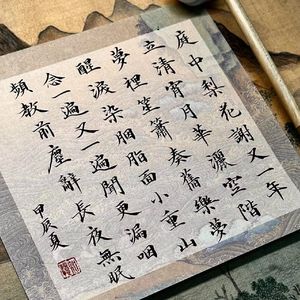 庭中梨花謝又一年
立清宵月華灑空階
夢裡笙簫奏舊樂夢
醒淚染胭脂面小重山
念一遍又一遍聞更漏咽
頻教前塵辭長夜無眠
甲辰夏